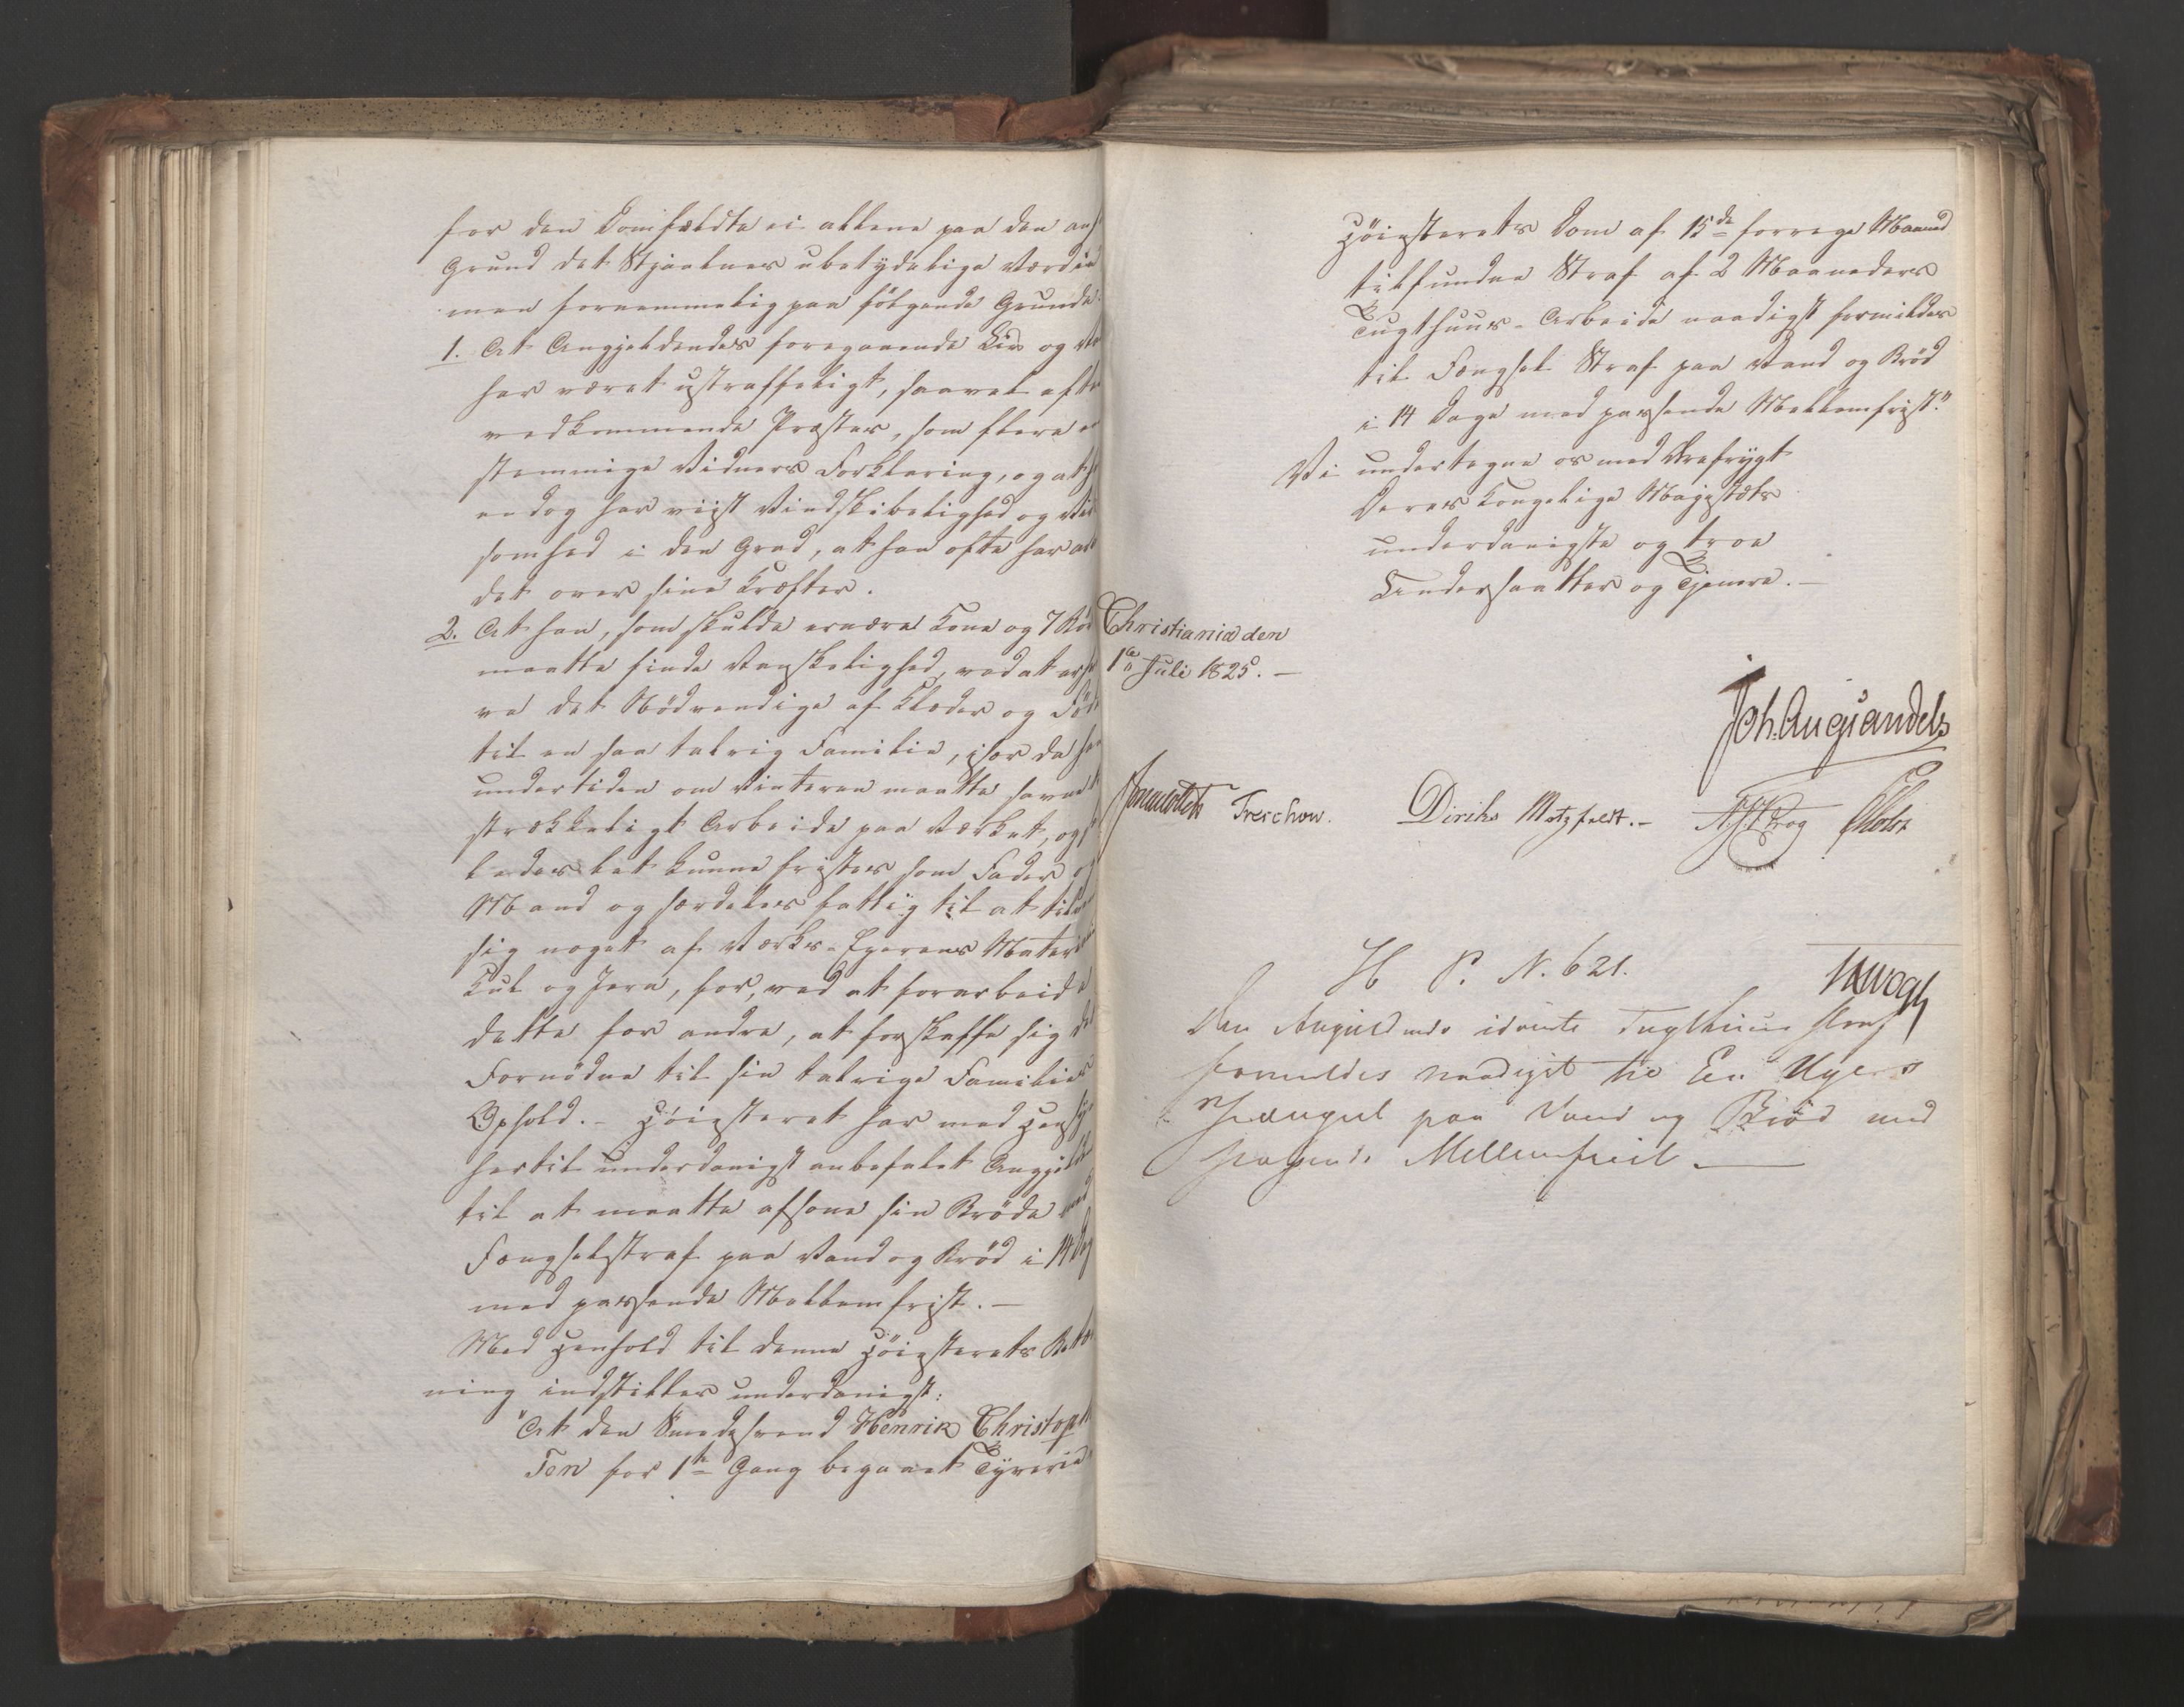 for den Domfældte ei allene paa den anf
Grund det Stjaalnes ubetydelige Værdie
men fornemmelig paa følgende Grunde
1. At Angjeldendes foregaaende Liv og
har været ustraffeligt, saavel efter
vedkommende Præstes, som flere
stemmige Vidners Forklaring, og at
endog har viist Vindskibelighed og
somhed i den Grad, at han ofte har
det over sine Kræfter.
2. At han, som skulde ernære Kone og 7 Bør
maatte finde Vanskelighed, ved at
ve det Nødvendige af Klæder og Fød
til en saa talrig Familie, især da han
undertiden om Vinteren maatte savne
strækkeligt Arbeide paa Værket, og
ledes let kunne fristes som Fader og
Mand og særdeles fattig til at til
sig noget af Værks-Eierens Materi
Kul og Jern, for, ved at forarbeide
dette for andre, at forskaffe sig det
Fornødne til sin talrige Families
Ophold. - Høiesteret har med Hensyn
hertil underdanigst anbefalet Angjeld
til at maatte afsone sin Brøde med
Fængselsstraf paa Vand og Brød i 14 Dag
med passende Mellemfrist. -
Med Henhold til denne Høiesterets Betæn
ning indstilles underdanigst:
"At den Smedesvend Henrik Christoph
Ton for 1te Gang begaaet Tyverie
Høiesterets Dom af 15de forrige Maaned
tilfundne Straf af 2 Maaneders
Tugthuus-Arbeide naadigst formildes
til Fængsel Straf paa Vand og Brød
i 14 Dage med passende Mellemfrist."
Vi undertegne os med Ærefrygt
Deres Kongelige Majestæts
underdanigste og troe
Undersaatter og Tjenere. -
Christiania den
1te Juli 1825. -
Joh. Aug. Sandels
Sommerhielm Treschow. Diriks Motzfeldt. - Krog Holst
H P. N. 621.
Vogt
Den Angieldende idømte Tugthuus straf
formildes naadigst til En Uges
Fængsel paa Vand og Brød med
passende Mellemfrist -